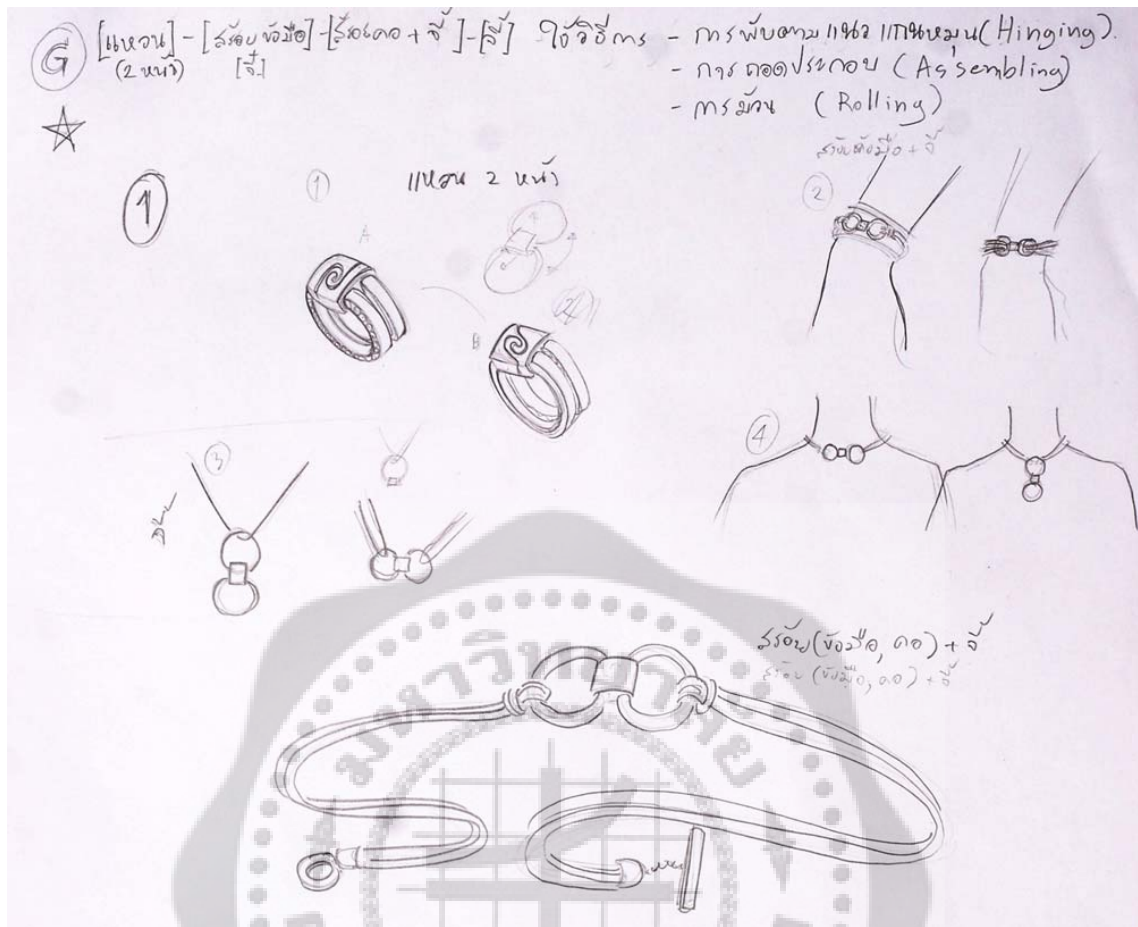 G [แหวน] - [สร้อยข้อมือ] - [สร้อยคอ + จี้] - [จี้] ใช้วิธีการ - การพับตามแนวแกนหมุน (Hinging).
(2 หน้า) + [จี้]
- การถอดประกอบ (Assembling)
- การม้วน (Rolling)
1
1 แหวน 2 หน้า
A
B
2 สร้อยข้อมือ + จี้
3
4
สร้อย (ข้อมือ, คอ) + จี้
สร้อย (ข้อมือ, คอ) + จี้
มหาวิทยาลัย